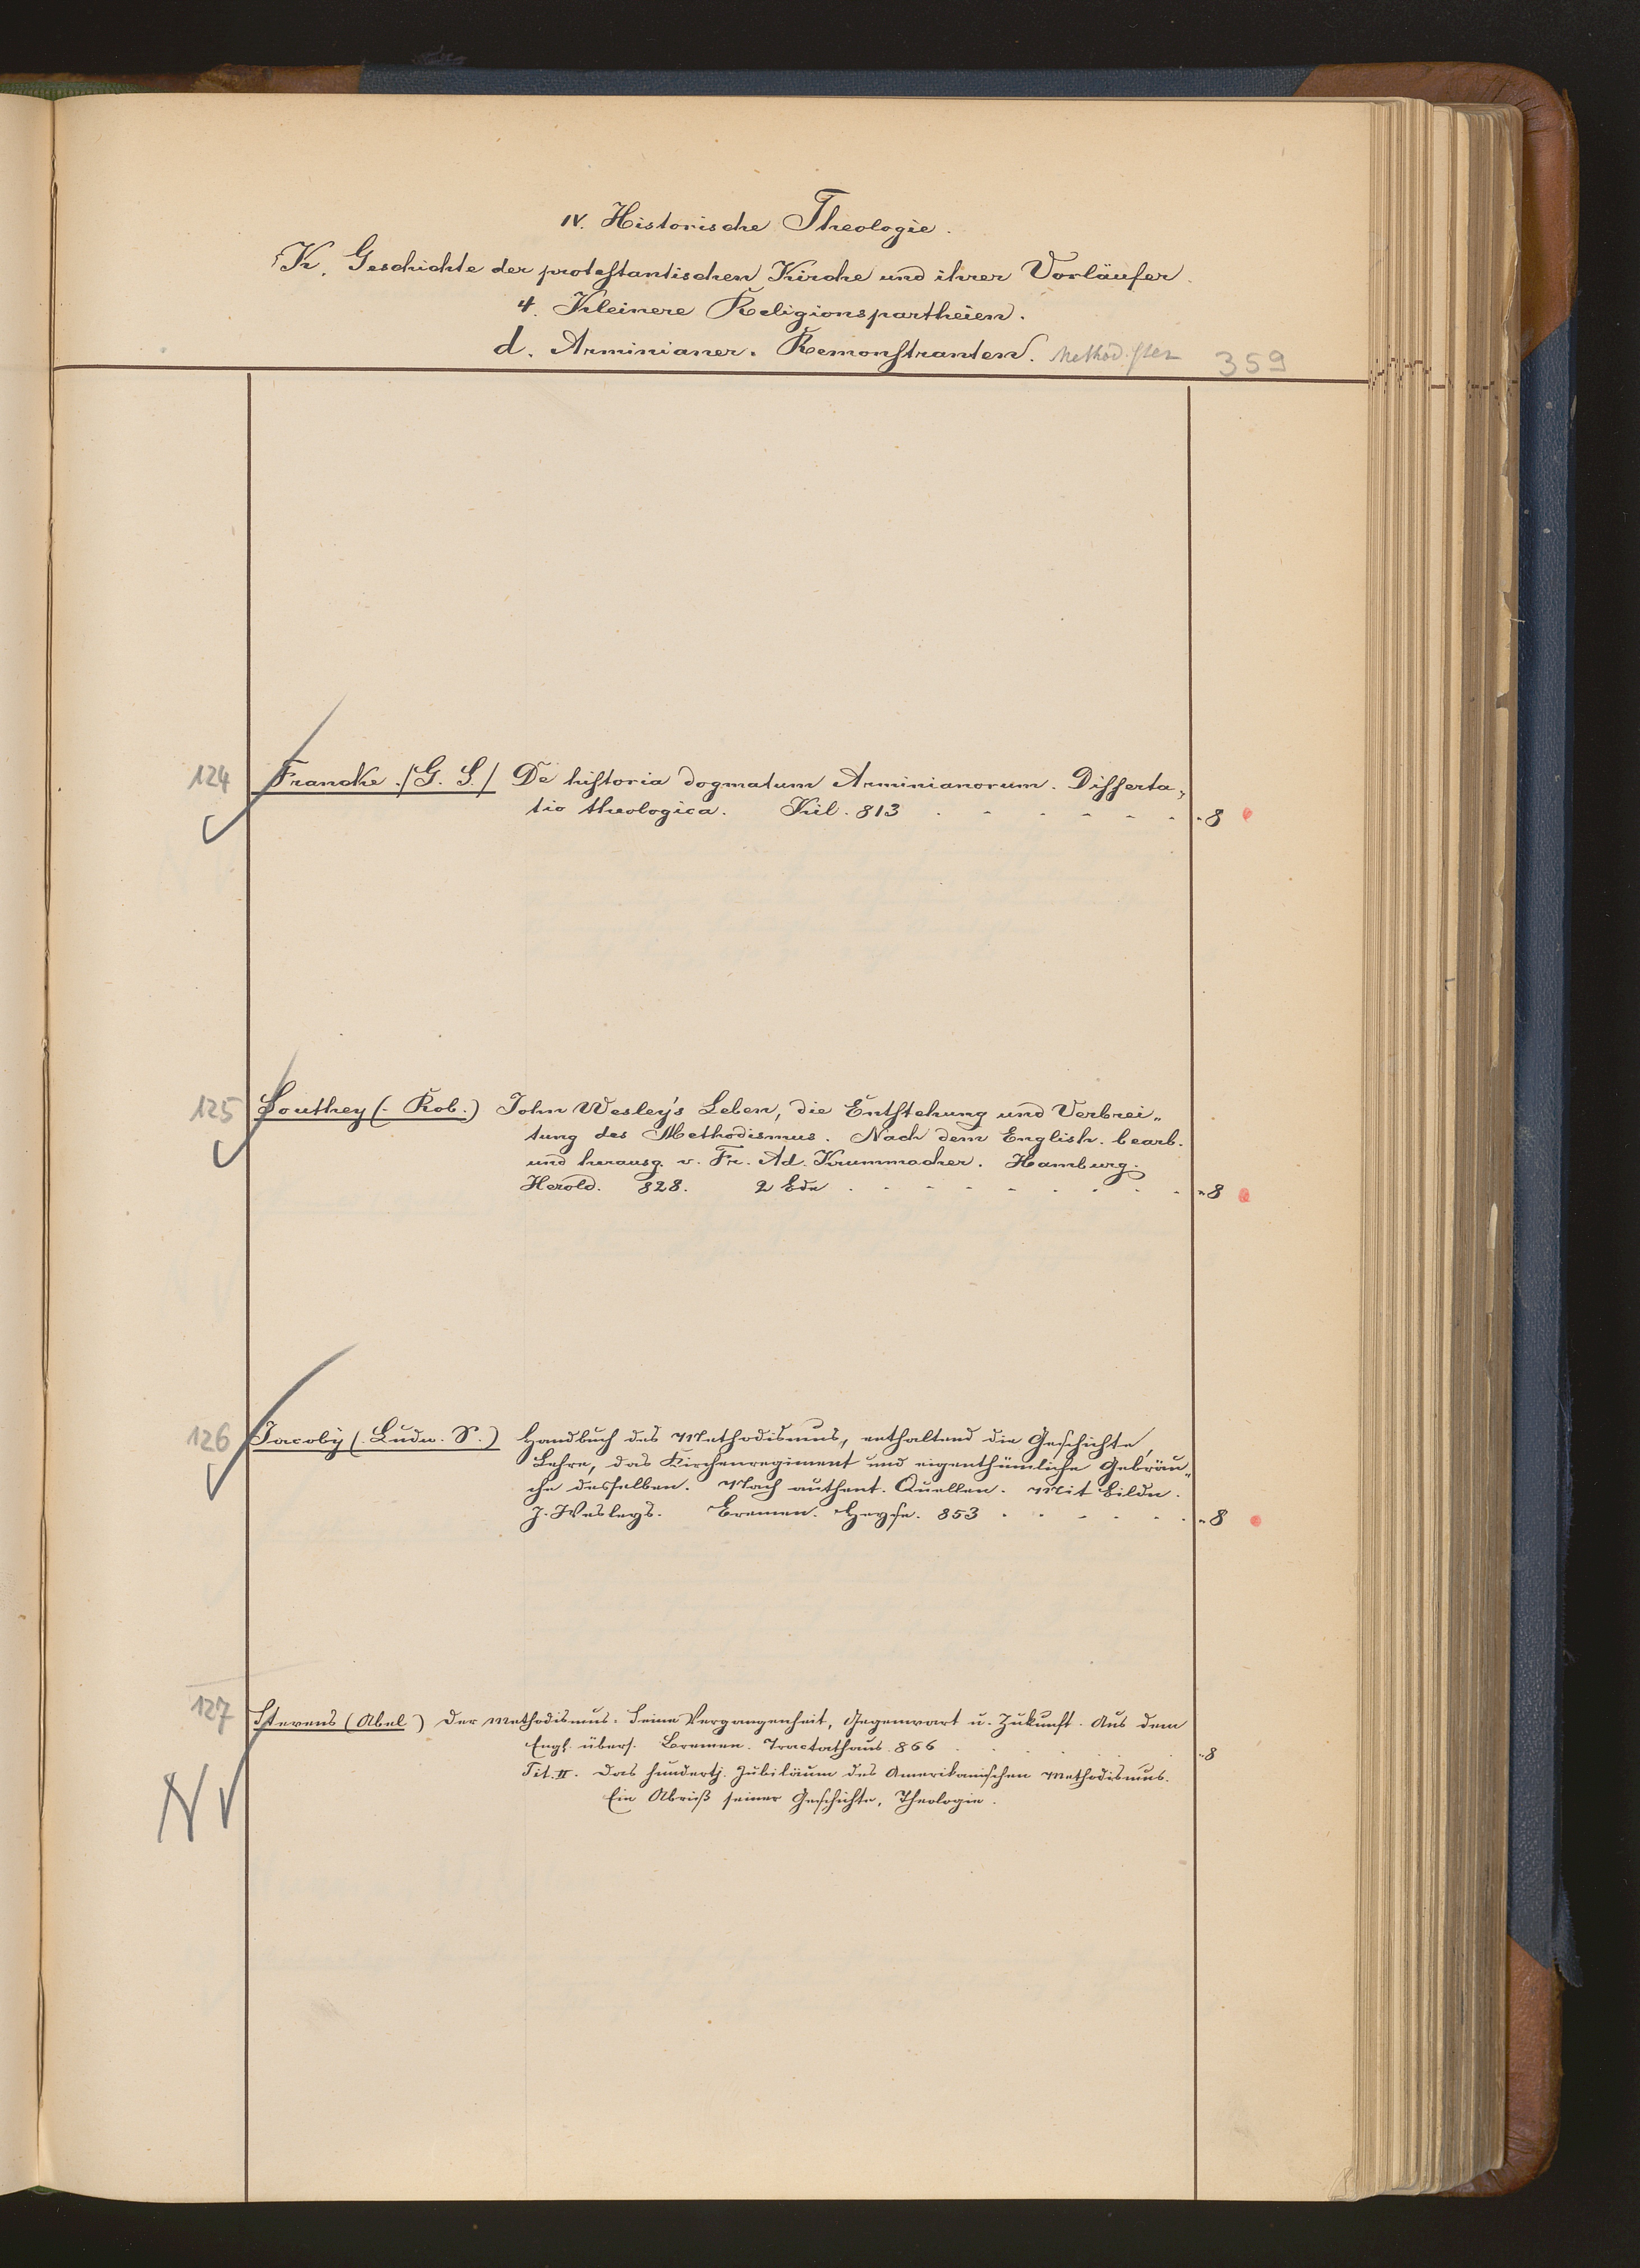 IV. Historische Theologie.
K. Geschichte der protestantischen Kirche und ihrer Vorläufer.
4. Kleinere Religionspartheien.
d. Arminianer. Remonstranten. Methodisten 359
124 Francke. (G. S.) De historia dogmatum Arminianorum. Disserta„
tio theologica. Kiel. 813 . - . - - - - 8
125 Southey (. Rob.) John Wesley's Leben, die Entstehung und Verbrei„
tung des Methodismus. Nach dem English. bearb.
und herausg. v. Fr. Ad. Krummacher. Hamburg.
Herold. 828. 2 Bde . - . - - - . . - „ 8
126 Jacoby (. Ludw. S.) Handbuch des Methodismus, enthaltend die Geschichte,
Lehre, das Kirchenregiment und eigenthümliche Gebräu„
che desselben. Nach authent. Quellen. Mit Bildn.
J. Wesleys. Bremen. Heyse. 853 . . - . . . „ 8
127 Stevens (Abel) Der Methodismus. Seine Vergangenheit, Gegenwart u. Zukunft. Aus dem
Engl. übers. Bremen. Tractathaus. 866 . . . . . „ 8
Tit. II. Das hundertj. Jubiläum des Amerikanischen Methodismus.
Ein Abriß seiner Geschichte, Theologie.
N V